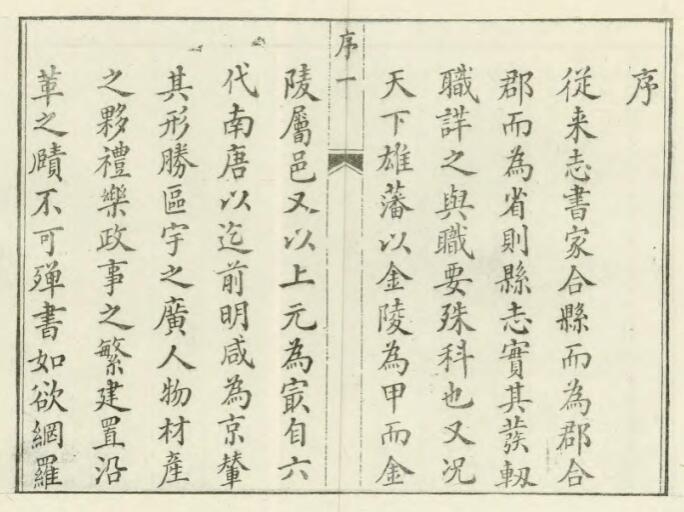 序
從来志書家合縣而為郡合
郡而為省則縣志實其發軔
職詳之與職要殊科也又况
天下雄藩以金陵為甲而金
序 一
陵屬邑又以上元為冣自六
代南唐以迄前明咸為京輦
其形勝區宇之廣人物材產
之夥禮樂政事之繁建置沿
革之賾不可殫書如欲網羅